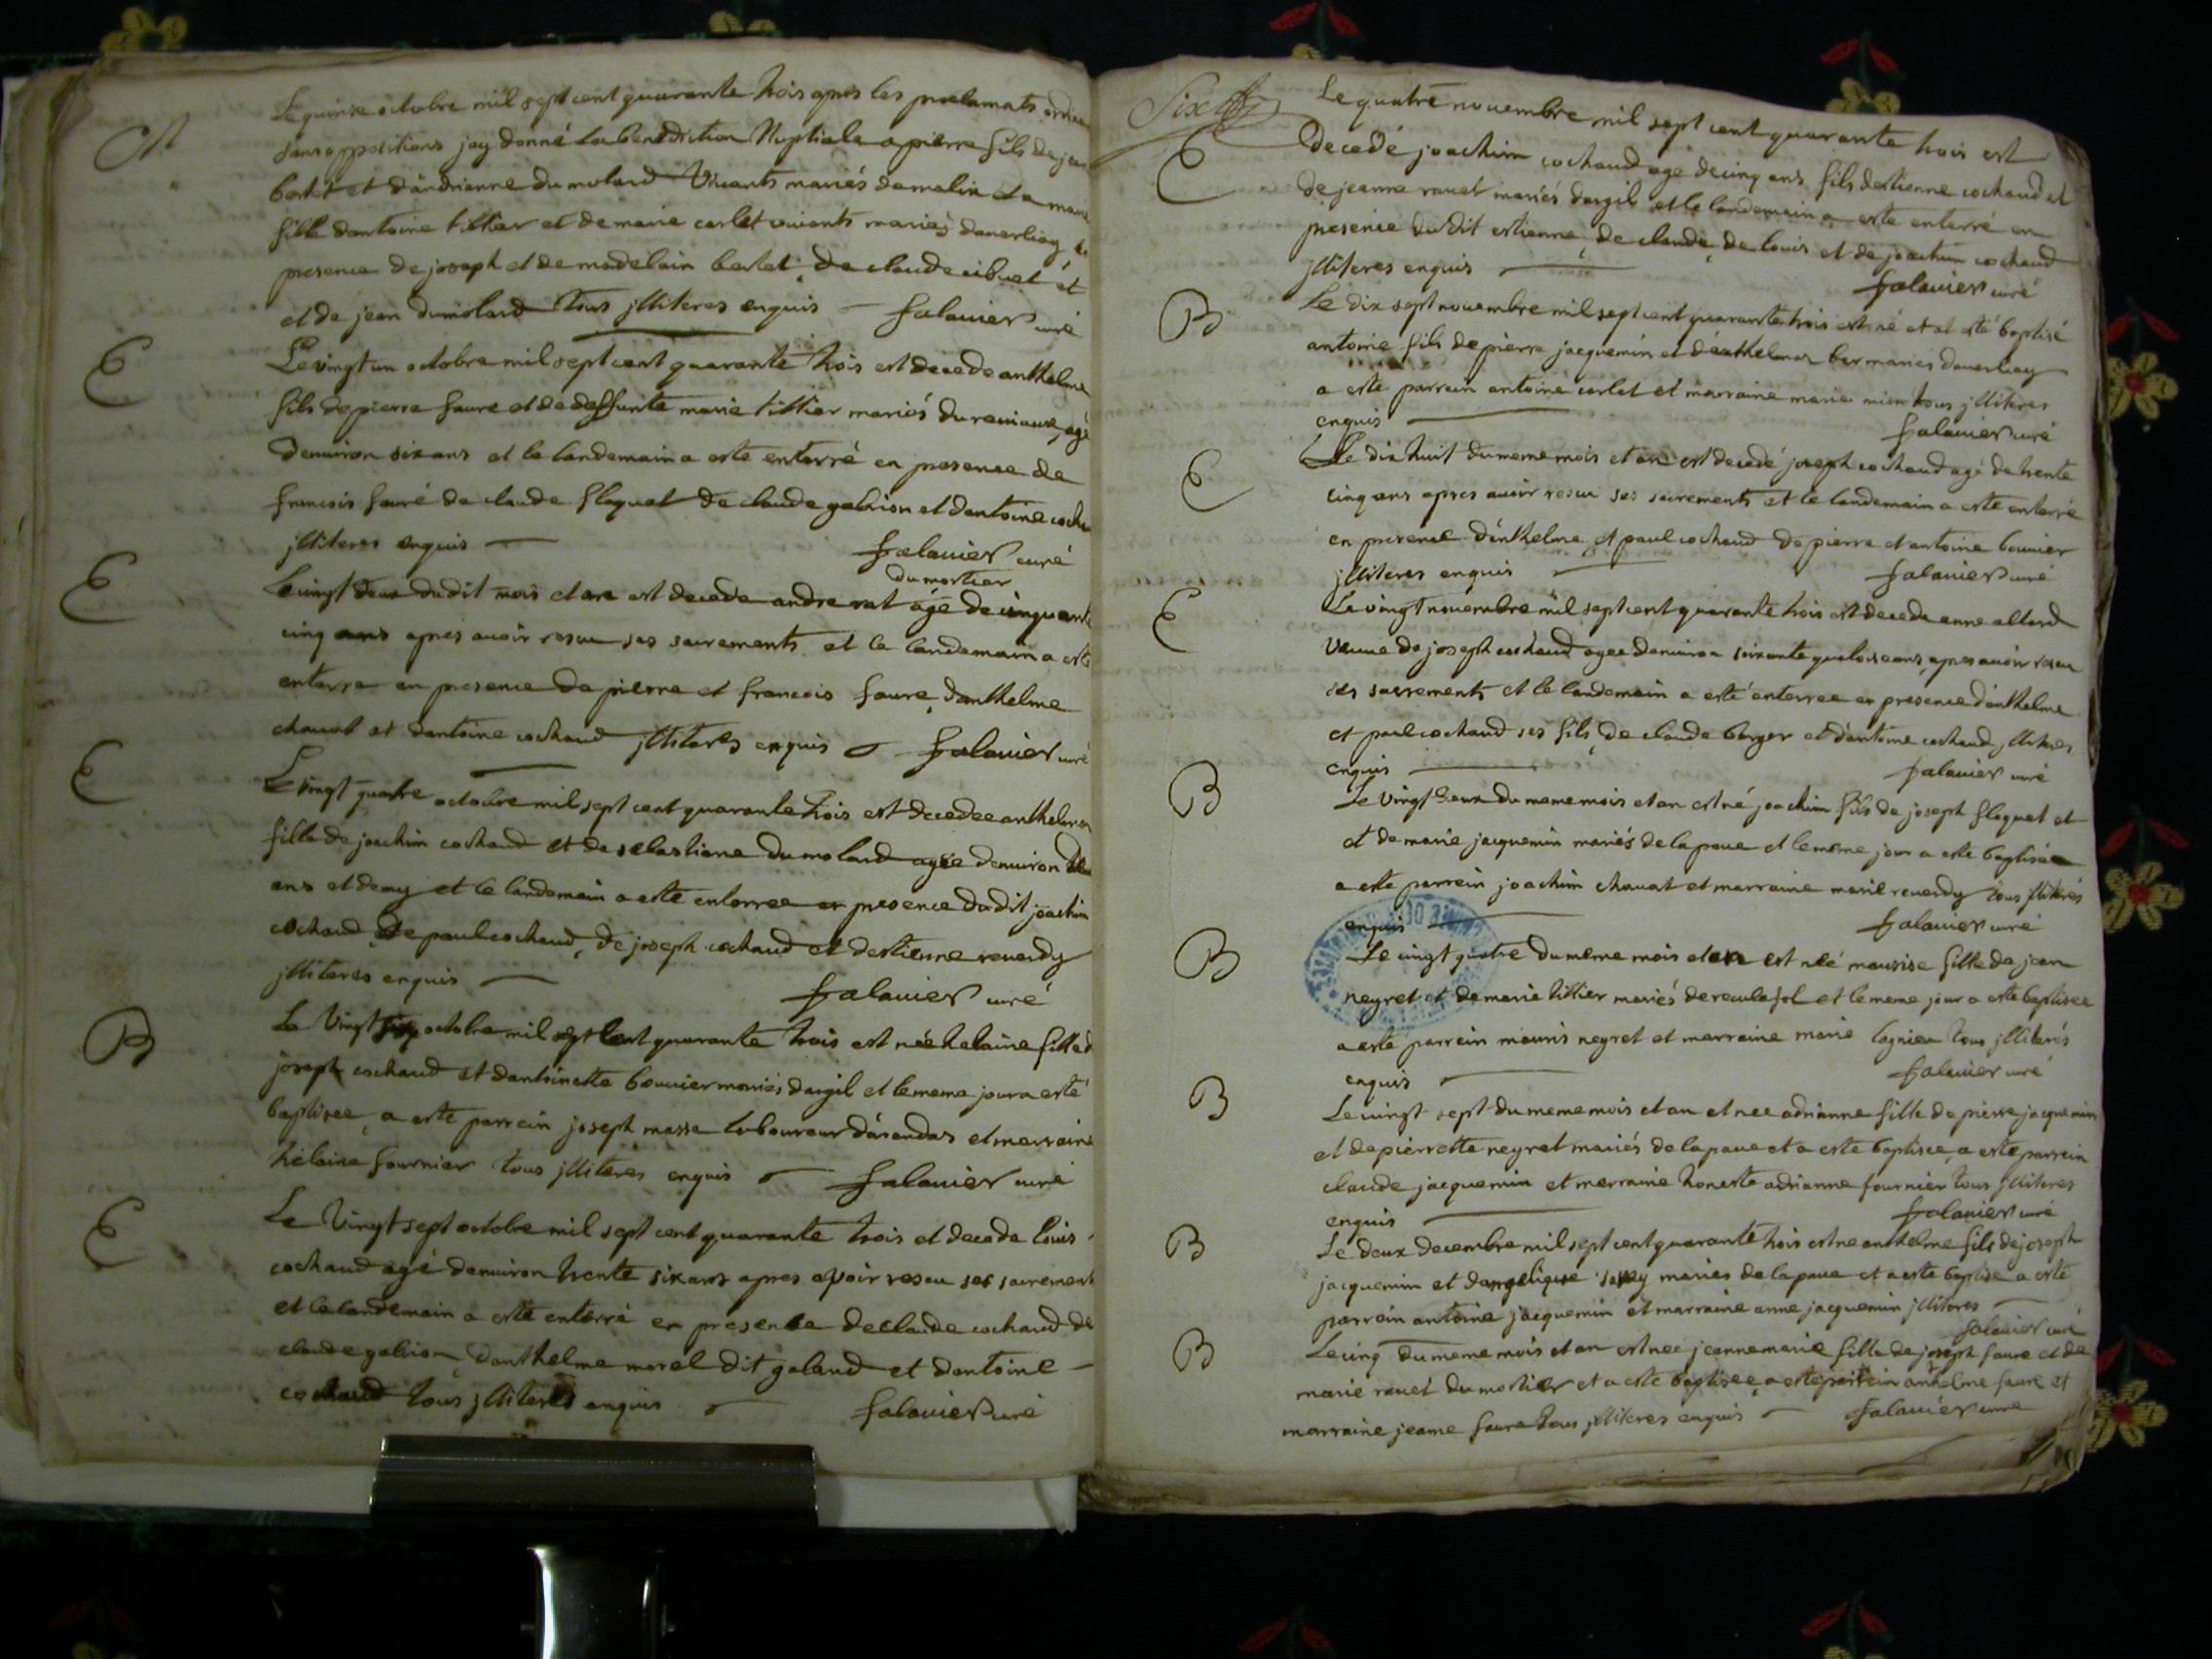 M
Le quinse octobre mil sept cent quarante trois apres les proclamats
sans oppositions jay donné la benediction Nuptiale a pierre fils de jean
bertet et dandrianne du molard Vivants mariés damalin et a marie
fille dantoine tillier et de marie carlet vivants mariés daverliay
presence de joseph et de madelain bertet de claude et
et de jean dumolard tous jlliteres enquis falavier curé
E
Le vingt un octobre mil sept cent quarante trois est decede anthelme
fils de pierre faure et de deffunte marie tillier mariés du agé
denviron six ans et le landemain a este enterré en presence de
francois fauré de claude floquet de claude galvion et dantoine
jlliteres enquis falavier curé
E
du mortier
le vingt deux dudit mois et an est decede andre rat âge de cinquante
cinq ans apres avoir reseu ses sacrements et le landemain a esté
enterre en presence de pierre et francois faure danthelme
chavat et dantoine cochaud jlliteres enquis falavier curé
E
Le vingt quatre octobre mil sept cent quarante trois est decedee anthelme
fille de joachim cochaud et de sebastiane dumolard agée denviron
ans et demy et le landemain a este enterree en presence dudit joachim
cochaud de paul cochaud, de joseph cochaud et destienne reverdy
jlliteres enquis falavier curé
B
Le Vingt octobre mil sept cent quarante trois est née helaine fille de
joseph cochaud et dantoinette bouvier mariés dargil et le meme jour a esté
baptisee, a este parrein joseph masse laboureur darandas et marraine
hélaine fournier tous jlliteres enquis falavier curé
E
Le Vingt sept octobre mil sept cent quarante trois et decede louis
cochaud agé denviron trente six ans apres avoir reseu ses sacrement
et le landemain a esté enterré en presence de claude cochaud de
claude galvion danthelme morel dit galand et dantoine
cochaud tous jlliteres enquis falavier curé
Six
E
Le quatre novembre mil sept cent quarante trois est
decedé joachim cochaud agé de cinq ans fils destienne cochaud et
de jeanne ravet mariés dargil et le landemain a este enterré en
presence dudit estienne, de claude, de louis et de joachim cochaud
jlliteres enquis falavier curé
B
Le dix sept novembre mil sept cent quarante trois est né et a esté baptisé
antoine fils de pierre jacquemin et danthelmaz ber maries daverliay
a este parrein antoine carlet et marraine marie tous jlliteres
enquis falavier curé
E
Le dix huit du meme mois et an est decedé joseph cochaud agé de trente
cinq ans apres avoir reseu ses sacrements et le landemain a esté enterré
en presence d'anthelme et paul cochaud de pierre et antoine bouvier
jlliteres enquis falavier curé
E
Le vingt novembre mil sept cent quarante trois est decede anne allard
veuve de joseph cochaud agee denviron soixante quatorse ans, apres avoir reseu
ses sacrements et le landemain a esté enterree en presence d'anthelme
et paul cochaud ses fils, de claude berger et dantoine cochaud jlliteres
enquis falavier curé
B
Le vingt deux du meme mois et an est né joachim fils de joseph floquet et
et de marie jacquemin mariés de la pave et le meme jour a este baptisée
a este parrein joachim chavat et marraine marie reverdy tous jlliteres
enquis falavier curé
B
Le vingt quatre du meme mois et an est néé maurise fille de jean
neyret et de marie tillier mariés de reculafol et le meme jour a este baptisee
a esté parrein mauris neyret et marraine marie lagnieu tous jlliterés
enquis falavier curé
B
Le vingt sept du meme mois et an et nee adrianne fille de pierre jacquemin
et de pierrette neyret mariés de la pave et a este baptisee, a este parrein
claude jacquemin et marraine honeste adrianne fournier tous jlliteres
enquis falavier curé
B
Le deux decembre mil sept cent quarante trois est ne anthelme fils de joseph
jacquemin et dangelique mariés de la pave et a este baptisé a esté
parrein antoine jacquemin et marraine anne jacquemin jlliteres
falavier curé
B
Le cinq du meme mois et an est nee jeanne marie fille de joseph faure et de
marie ravet du mortier et a este baptisee, a este parrein anthelme faure et
marraine jeanne faure tous jlliteres enquis falavier curé